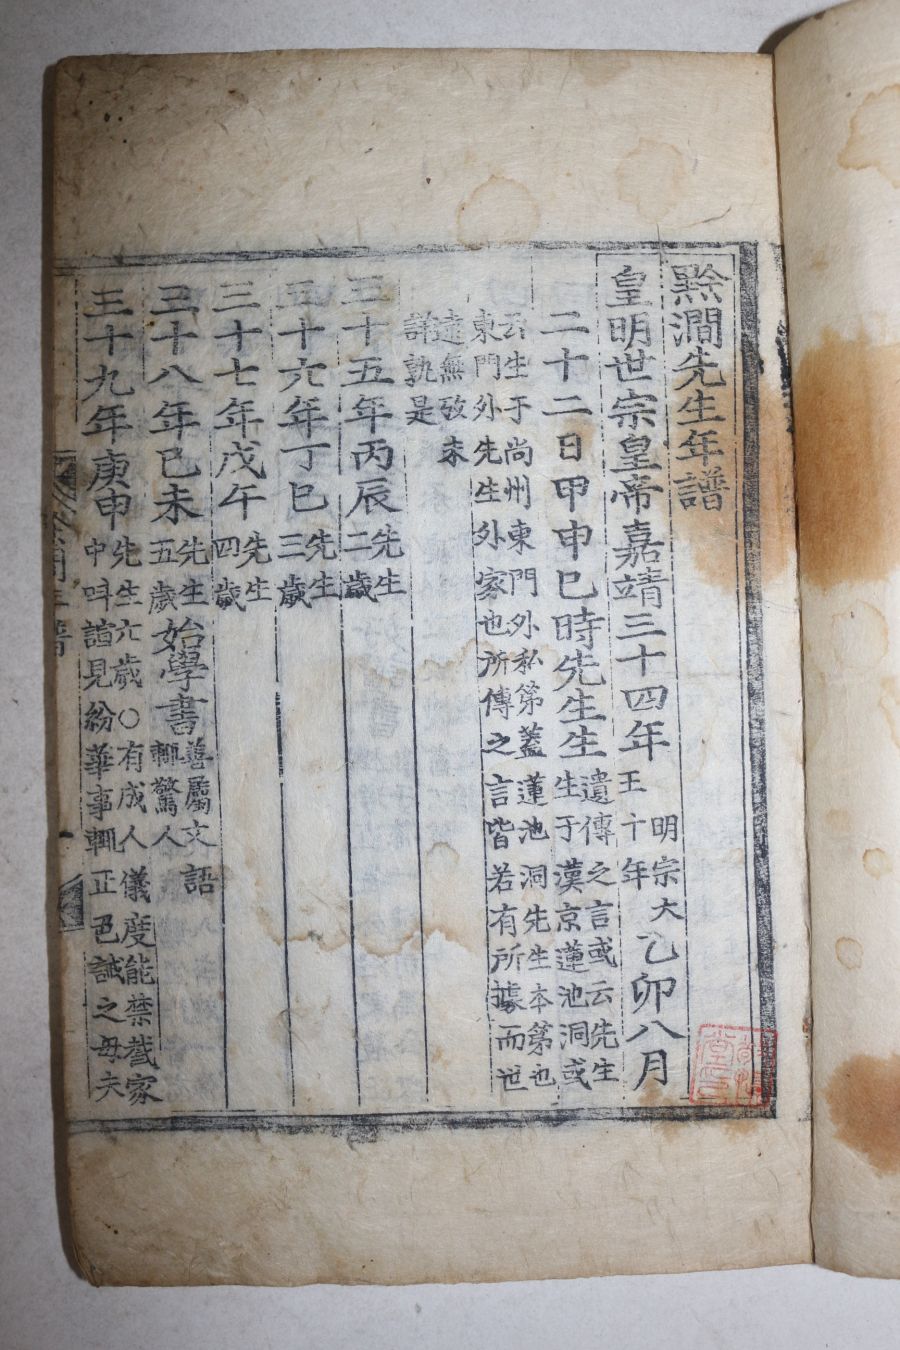 黔澗先生年譜
皇明世宗皇帝嘉靖三十四年
明宗大
王十年
乙卯八月
二十二日甲申巳時先生生
遺傳之言或云先生
生于漢京蓮池洞或
云生于尚州東門外私第蓋蓮池洞先生本第也
東門外先生外家也所傳之言皆若有所據而世
遠無攷未
詳孰是
三十五年丙辰
先生
二歲
三十六年丁巳
先生
三歲
三十七年戊午
先生
四歲
三十八年己未
先生
五歲
始學書
善屬文語
輒驚人
三十九年庚申
先生六歲○有成人儀度能禁截家
中呌見紛華事輒正色誡之毋夫